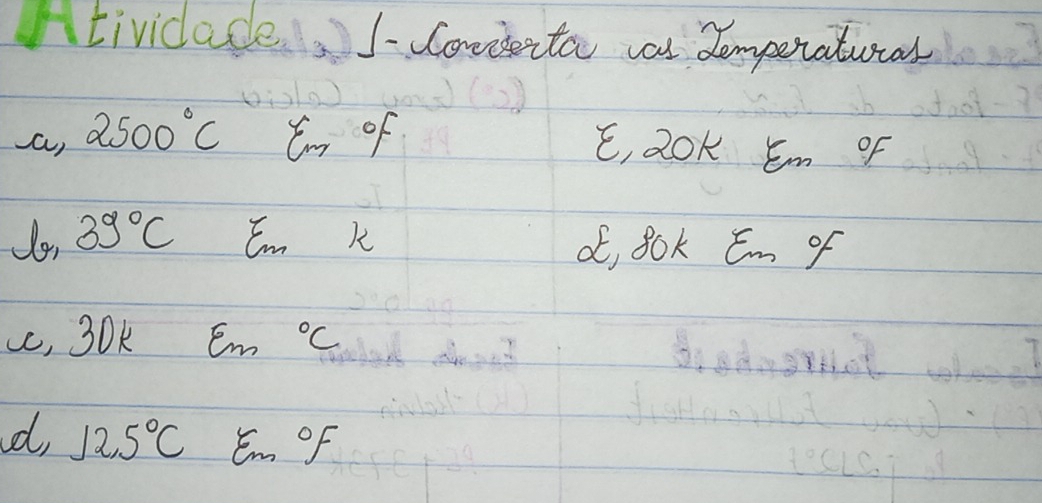 Atividade 1- Converta as Temperaturas
a, 2500°C Em °F
E, 20K Em °F
b, 39°C Em K
F, 80K Em °F
c, 30K Em °C
d, 12,5°C Em °F